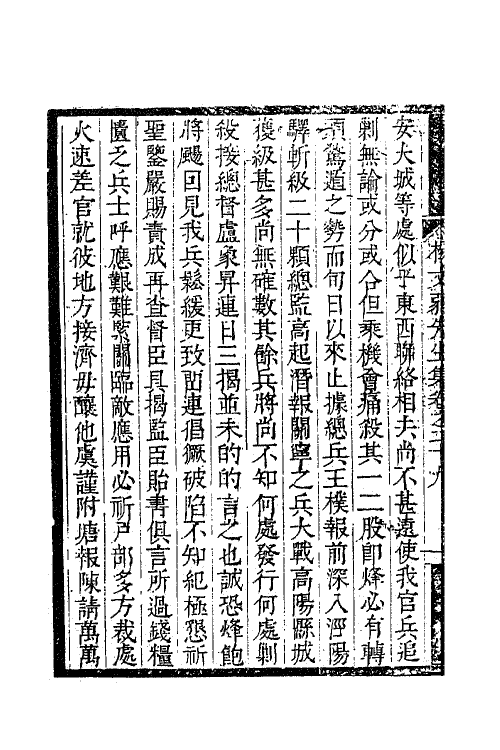 安大城等處似乎東西聯絡相去尚不甚遠使我官兵追
剿無論或分或合但乘機會痛殺其一二股卽烽必有轉
頭驚遁之勢而旬日以來止據總兵王樸報前深入涇陽
驛斬級二十顆總監高起潛報關寧之兵大戰高陽縣城
獲級甚多尚無確數其餘兵將尚不知何處發行何處剿
殺按總督盧象昇連日三揭並未的的言之也誠恐烽飽
將颺回見我兵鬆緩更致留連倡獗破陷不知紀極懇祈
聖鑒嚴賜責成再查督臣具揭監臣貽書俱言所過錢糧
匱乏兵士呼應艱難緊關臨敵應用必祈戶部多方裁處
火速差官就彼地方接濟毋釀他虞謹附塘報陳請萬萬
楊文弱先生集卷之二十九